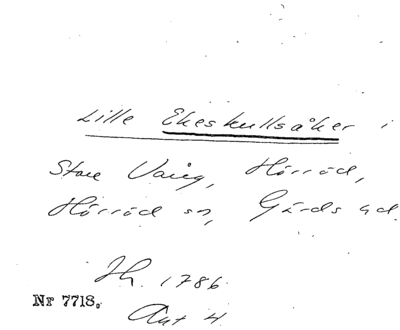 Lille Ekeskullsåker i
Store Vång, Hörröd,
Hörröd sn, Gärds hd.
Jh. 1786
Nr 7718.
Akt 4